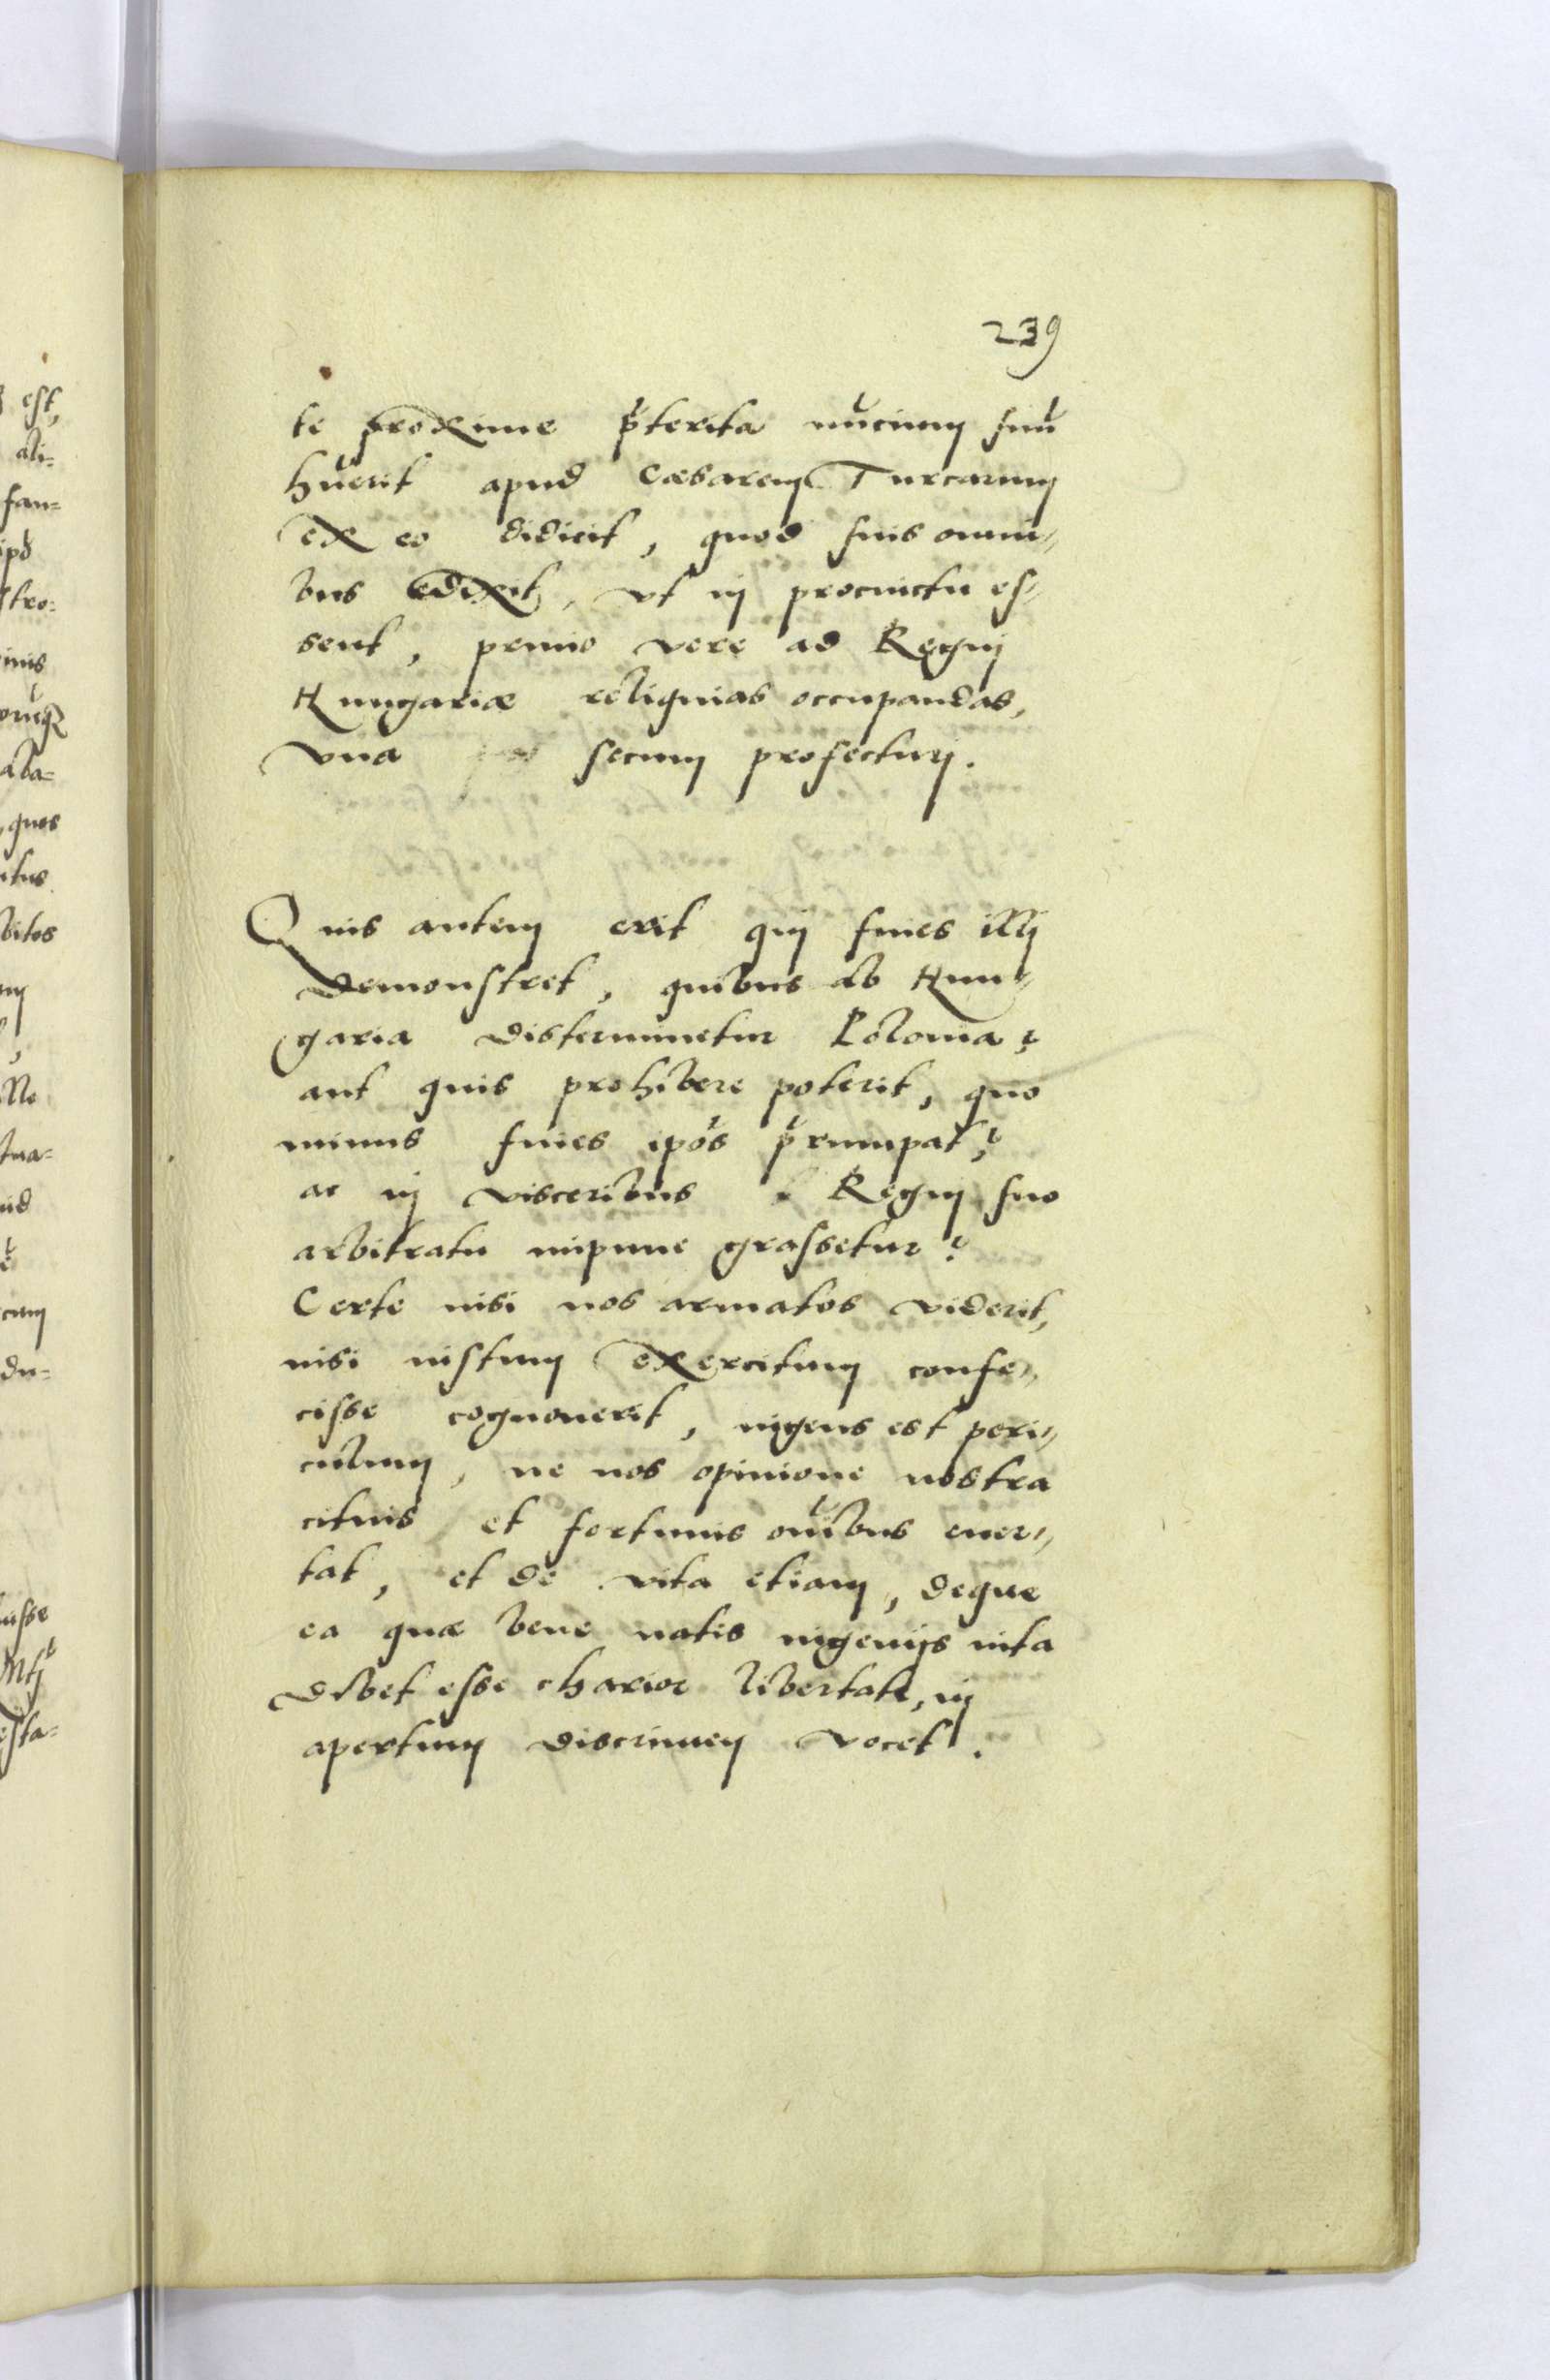 239
te proxime pͨterita nūcium suū
hūerit apud Cæsarem Turcarum
ex eo didicit, quod suis omni-
bus edixit, vt in procinctu es-
sent, primo vere ad Regni
Hungariæ reliquias occupandas,
vna secum profecturi.
Quis autem erit qui fines illi
demonstret, quibus ab Hun-
garia disterminetur Polonia?
aut quis prohibere poterit, quo
minus fines ipōs pͨrumpat?
ac in visceribus Regni suo
arbitratu impune grassetur?
Certe nisi nos armatos viderit,
nisi iustum exercitum confe-
cisse cognouerit, ingens est peri-
culum, ne nos opinione nostra
cituis et fortunis oi͞bus euer-
tat, et de vita etiam, deque
ea quæ bene natis ingenijs uita
debet esse charior libertate, in
apertum discrimen vocet.
est,
ali-
fan-
ipō
stro-
inis
aba-
quos
itus
bitos
tua-
cum
du-
uisse
esta-